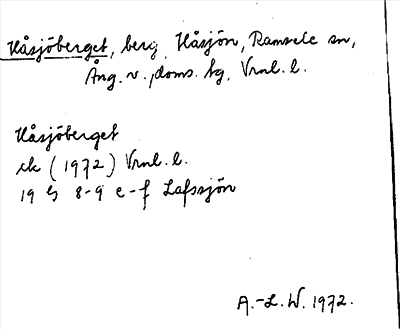 Håsjöberget, berg, Håsjön, Ramsele sn,
Ång. v., doms. hg, Vrnl. l.
Håsjöberget
ek (1972) Vrnl. l.
19 G 8-9 e-f Lafssjön
A.-L. W. 1972.